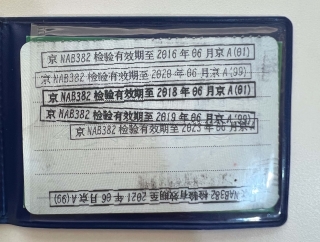 京 NAB382 检验有效期至 2016 年 06 月京 A(01)
京 NAB382 检验有效期至 2020 年 06 月京 A(99)
京 NAB382 检验有效期至 2018 年 06 月京 A(01)
京 NAB382 检验有效期至 2019 年 06 月京 A(99)
京 NAB382 检验有效期至 2023 年 06 月京
京 NAB382 检验有效期至 2021 年 06 月京 A(99)